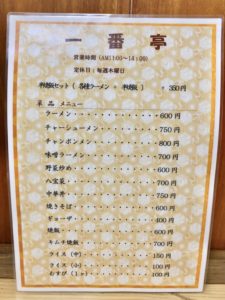 一番亭
営業時間 (AM11:00～14:00)
定休日:毎週木曜日
半焼飯セット ( 各種ラーメン + 半焼飯 ) + 350円
単品 メニュー
ラーメン・・・・・・・・・・・600円
チャーシューメン・・・・・・・・750円
チャンポンメン・・・・・・・・・800円
味噌ラーメン・・・・・・・・・・700円
野菜炒め・・・・・・・・・・・600円
八宝菜・・・・・・・・・・・・700円
中華丼・・・・・・・・・・・・750円
焼きそば・・・・・・・・・・・600円
ギョーザ・・・・・・・・・・・400円
焼飯・・・・・・・・・・・・・600円
キムチ焼飯・・・・・・・・・・700円
ライス (中)・・・・・・・・・・150円
ライス (小)・・・・・・・・・・100円
むすび (1ヶ)・・・・・・・・・100円